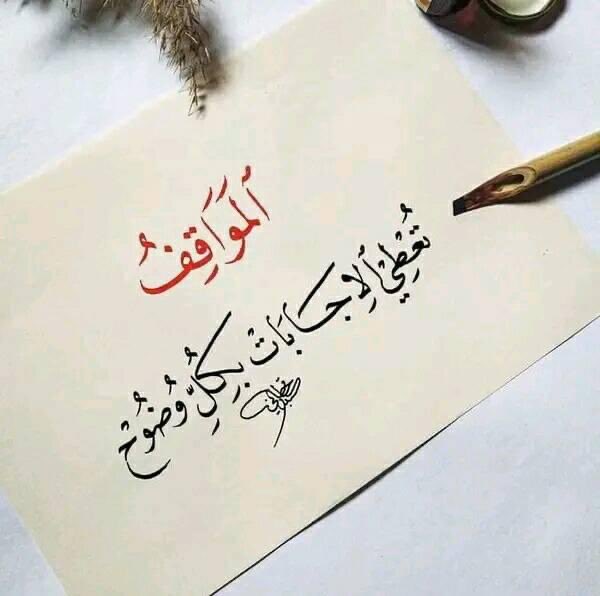 المَوَاقِفُ
تُعْطِيْ ألِاجَابَاتْ بِكُلِّ وُضُوحْ